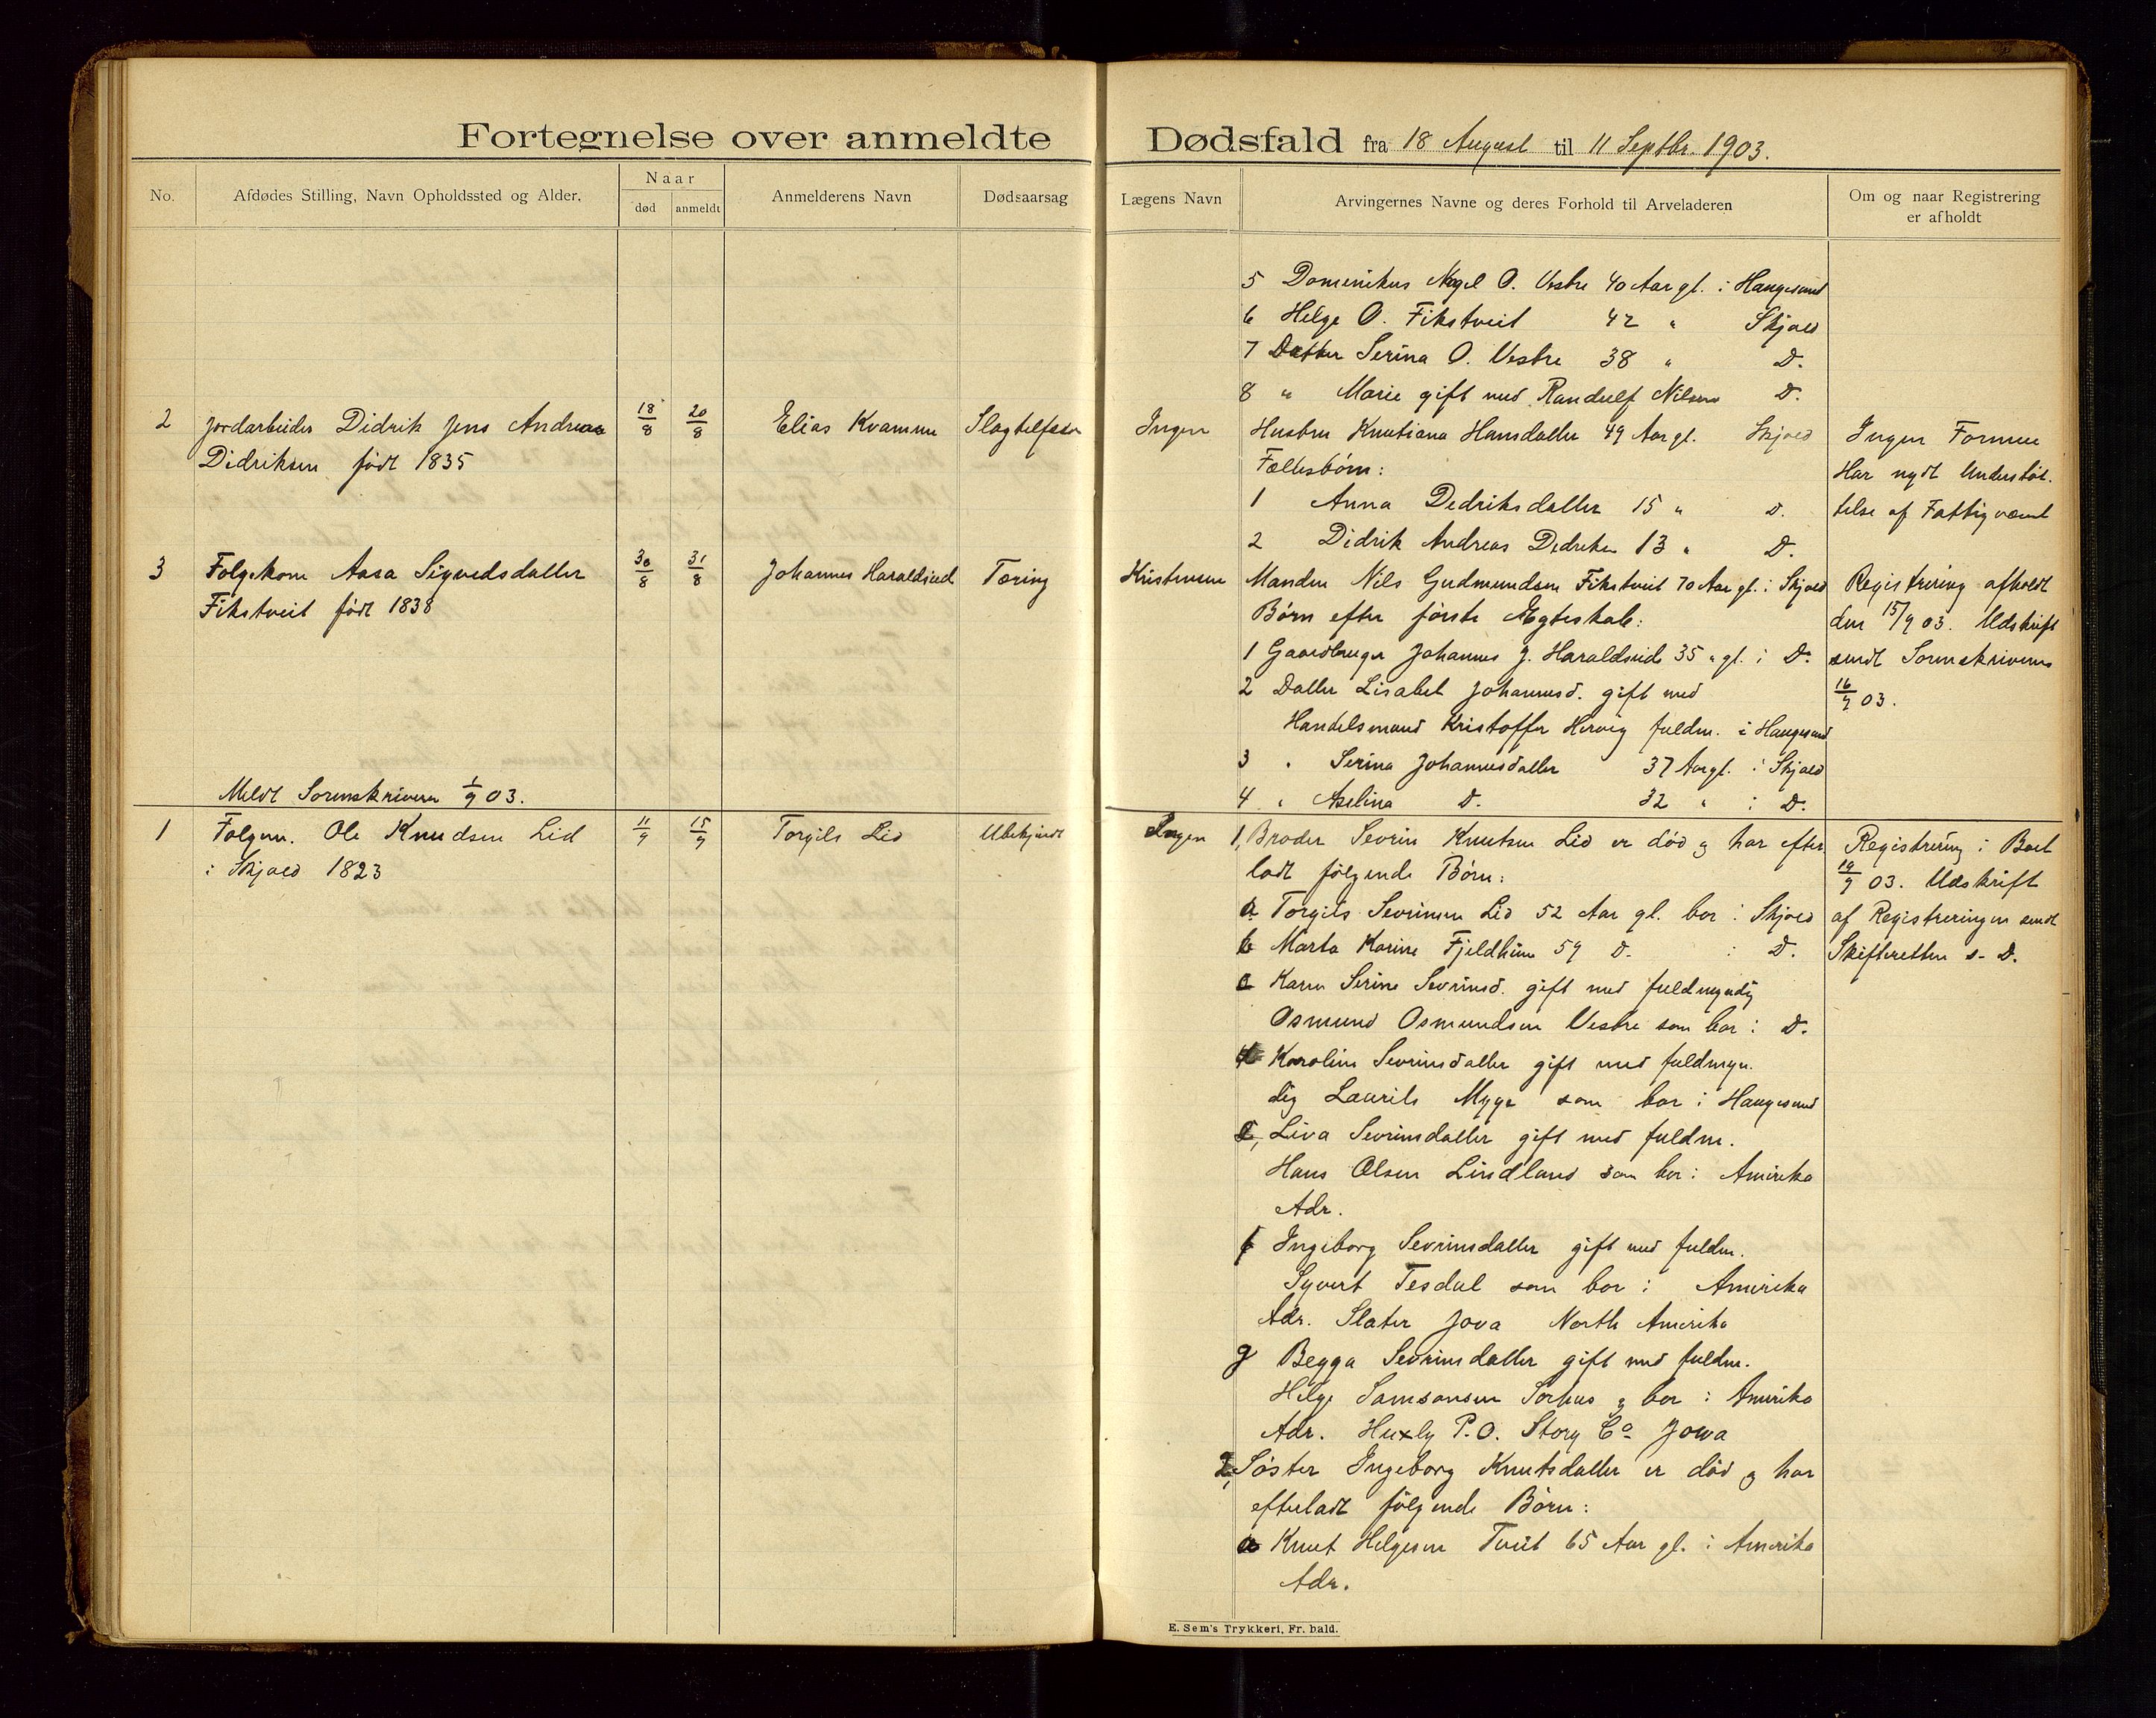 Fortegnelse over anmeldte Dødsfald fra 18 August til 11 Septbr. 1903.
No. Afdødes Stilling, Navn Opholdssted og Alder. Naar død anmeldt Anmelderens Navn Dødsaarsag Lægens Navn Arvingernes Navne og deres Forhold til Arveladeren Om og naar Registrering er afholdt
5 Dominikus Nagel O. Vestre 40 Aar gl. i Haugesund
6 Helge O. Fikstveit 42 " Skjold
7 Datter Serina O. Vestre 38 " D.
8 " Marie gift med Randulf Nilsen D.
2 Jordarbeider Didrik Jens Andreas 18/8 20/8 Elias Kvamme Slagtilfælde Ingen Hustru Knutiana Hansdatter 49 Aar gl. Skjold Ingen Formue
Didriksen født 1835 Fællesbörn: Har nydt Understöt-
1 Anna Dedriksdatter 15 " D. telse af Fattigvæsnet
2 Didrik Andreas Dedriksen 13 " D.
3 Folgekone Aasa Sigvedsdatter 30/8 31/8 Johannes Haraldseid Tæring Kristensen Manden Nils Gudmundsen Fikstveit 70 Aar gl. i Skjold Registrering afholdt
Fikstveit født 1838 Børn efter første Ægteskab: den 15/9 03. Udskrift
1 Gaardbruger Johannes J. Haraldseid 35 " gl. i D. sendt Sorenskriveren
2 Datter Lisabet Johannesd. gift med 16/9 03.
Handelsmand Kristoffer Hervig fuldm. i Haugesund
3 " Serina Johannesdatter 37 Aar gl. i Skjold
Meldt Sorenskriveren 1/9 03.
4 " Aselina D. 32 " i D.
1 Folgem. Ole Knudsen Lid 11/9 15/9 Torgils Lid Ubekjendt Ingen 1, Broder Sevrin Knutsen Lid er död og har efter Registrering i Boet
i Skjold 1823 ladt følgende Børn: 19/9 03. Udskrift
a Torgils Sevrinsen Lid 52 Aar gl. bor i Skjold af Registreringen sendt
b Marta Karine Fjeldheim 59 D. i D. Skifteretten s. D.
c Karen Serine Sevrinsd. gift med fuldmyndig
Osmund Osmundsen Vestre som bor i D.
d Karoline Sevrinsdatter gift med fuldmyn-
dig Laurits Myge som bor i Haugesund
e, Liva Sevrinsdatter gift med fuldm.
Hans Olsen Lindland som bor i Amirika
Adr.
f Ingeborg Sevrinsdatter gift med fuldm.
Syvert Tesdal som bor i Amirika
Adr. Slater Jova North Amirika
g Begga Sevrinsdatter gift med fuldm.
Helge Samsonsen Sørhus og bor i Amirika
Adr. Huxly P.O. Story Co Jowa
2, Søster Ingeborg Knutsdatter er död og har
efterladt følgende Børn:
a Knut Helgesen Tveit 65 Aar gl. i Amerika
Adr.
E. Sem's Trykkeri, Fr. hald.